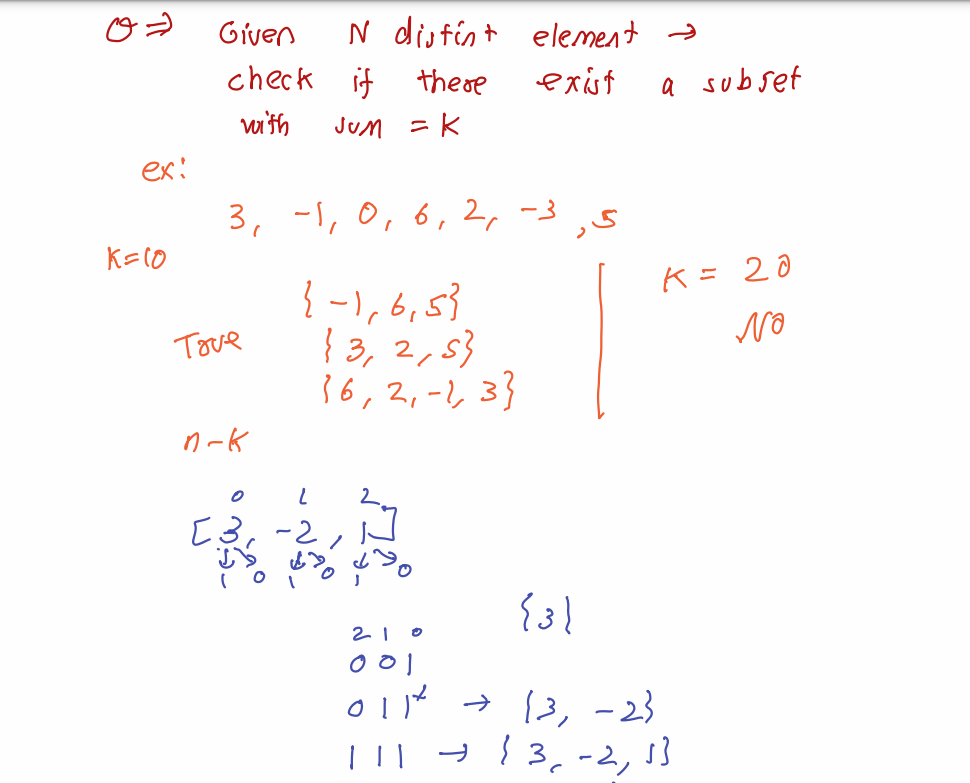 Q ⇒ Given N distinct element →
check if there exist a subset
with sum = K
ex:
3, -1, 0, 6, 2, -3, 5
K=10
{ -1, 6, 5}
True { 3, 2, 5}
{6, 2, -1, 3}
K = 20
NO
n-k
0 1 2
[3, -2, 1]
1 0 1 0 1 0
{3}
2 1 0
0 0 1
0 1 1 → {3, -2}
1 1 1 → { 3, -2, 1}